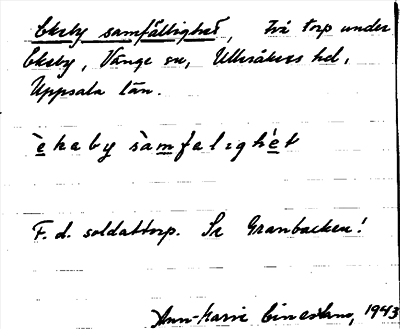 Ekeby samfällighet, två torp under
Ekeby, Vänge sn, Ulleråkers hd,
Uppsala län.
èkaby sàmfalighèt
F.d. soldattorp. Se Granbacken!
Ann-Marie 1943